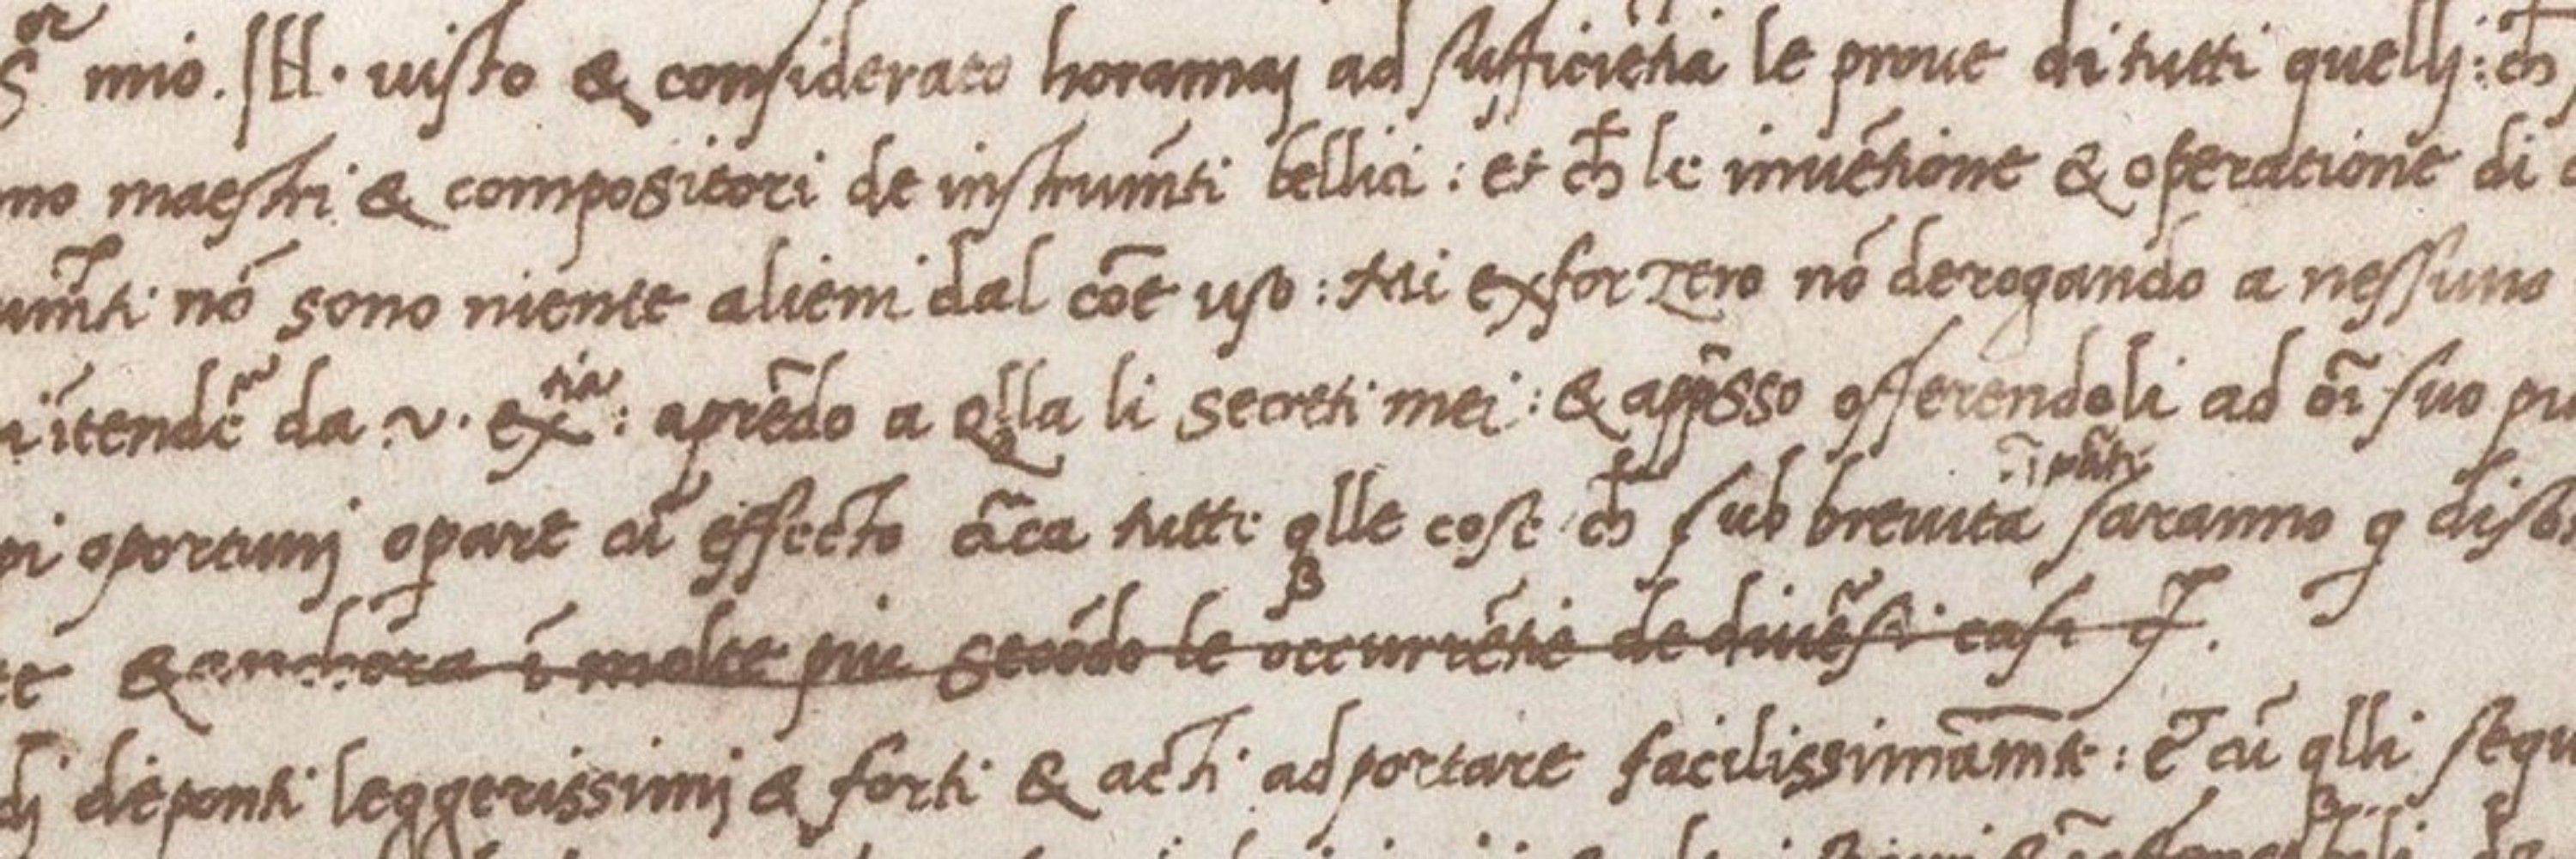 S^or mio. Ill. uisto & considerato horamaj ad sufficiētia le proue di tutti quellj: ch
no maestri & compositori de instrumēti bellici: et ch le inuētione & operatione di
umēti nō sono niente alieni dal cōe uso: Mi exforzero nō derogando a nessuno
ītendē da v. ex^tia: aprēdo a qlla li secreti mei: & appsso offerendoli ad ōi suo pi
pi oportunj opare cū effecto cīca tutte qlle cose ch sub breuita ī pāty saranno q disot
te & anchōra ī molte piu secōdo le occurrētie de diuēsi casi
dj de ponti leggerissimj & forti & acti ad portare facilissimamte: & cū qlli segu